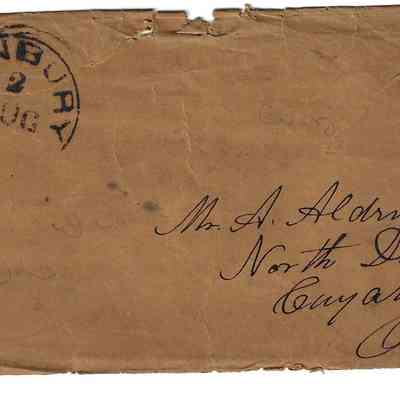 NBURY
2
UG
Mr. A. Aldr
North D
Cuya
O